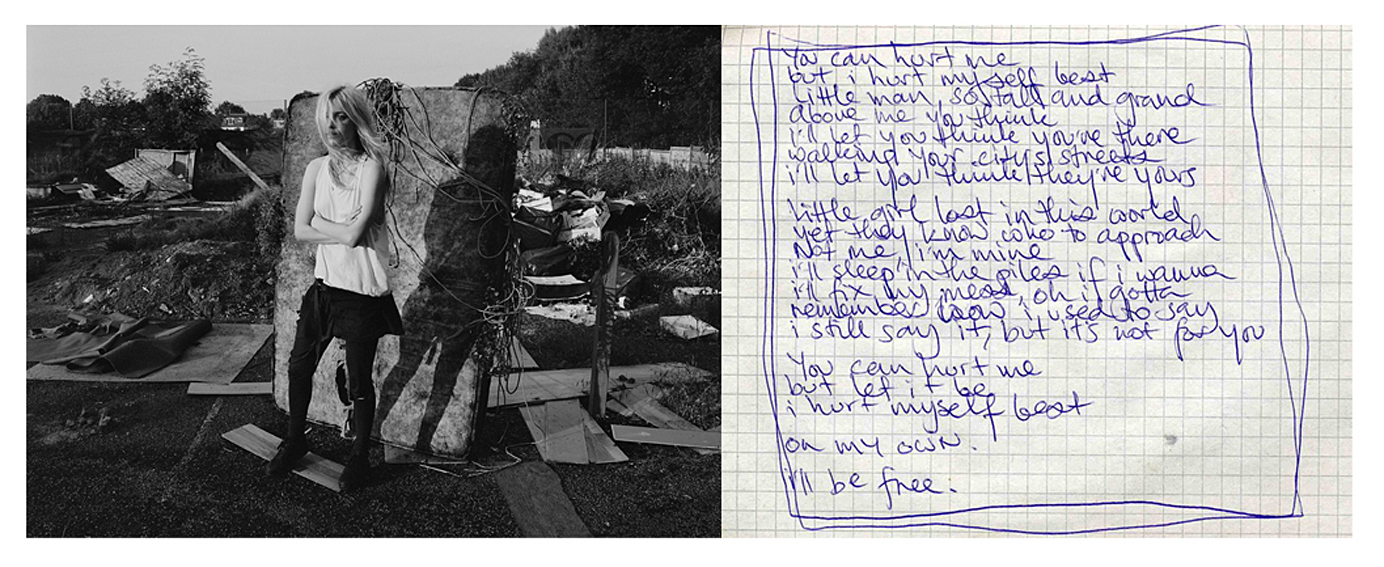 You can hurt me
but i hurt myself best
Little man, so tall and grand
above me you think
i'll let you think you're there
walking your city's streets
i'll let you think they're yours
Little girl lost in this world
yet they know who to approach
Not me, i'm mine
i'll sleep in the piles if i wanna
i'll fix my mess, oh i gotta
remember how i used to say
i still say it, but it's not for you
You can hurt me
but let it be
i hurt myself best
on my own.
i'll be free.